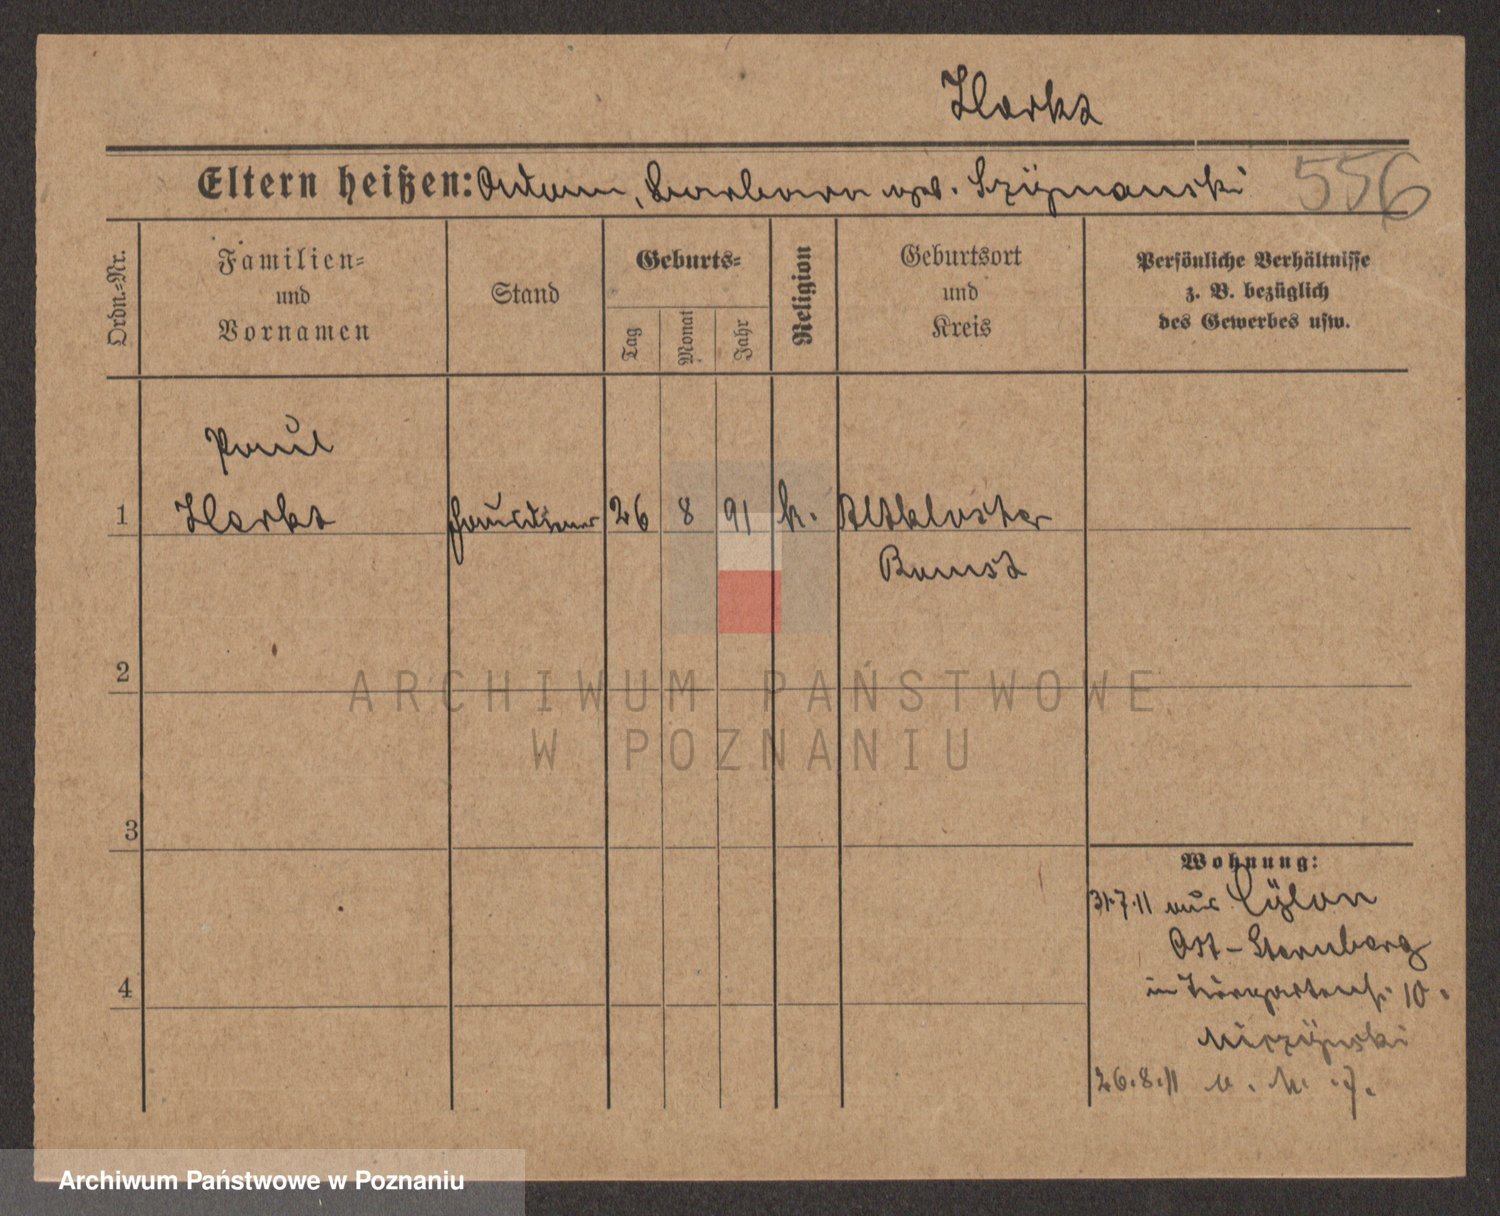 Eltern heißen: Adam, Barbara geb. Szymanski
556
Ordn.-Nr.
Familien-
und
Vornamen
Stand
Geburts-
Tag
Monat
Jahr
Religion
Geburtsort
und
Kreis
Persönliche Verhältnisse
z. B. bezüglich
des Gewerbes usw.
Paul
1 Hausdiener 26 8 91 k. Altkloster
Bomst
2
3
4
Wohnung:
31.7.11 aus
Ost-Sternberg
in 10.
26.8.11
ARCHIWUM PAŃSTWOWE
W POZNANIU
Archiwum Państwowe w Poznaniu